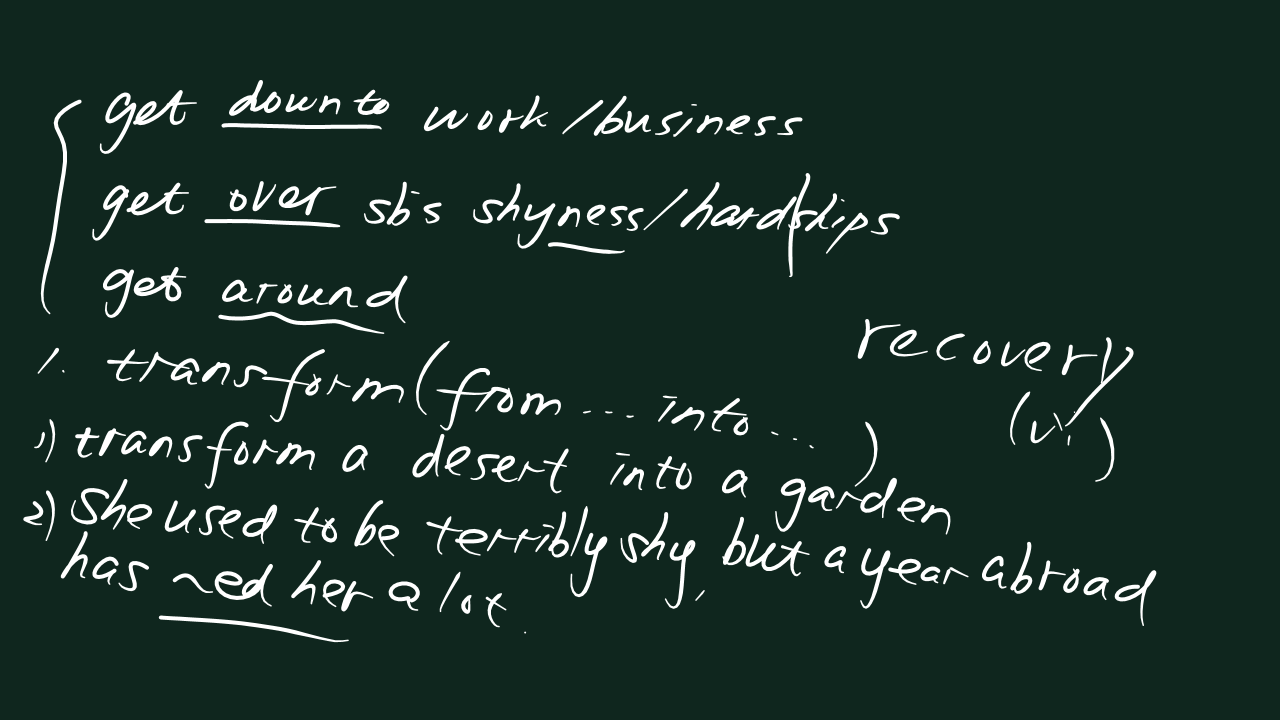 get down to work/business
get over sb's shyness/hardships
get around
1. transform (from ... into ... )
recovery
(vi)
1) transform a desert into a garden
2) She used to be terribly shy, but a year abroad
has ~ed her a lot.